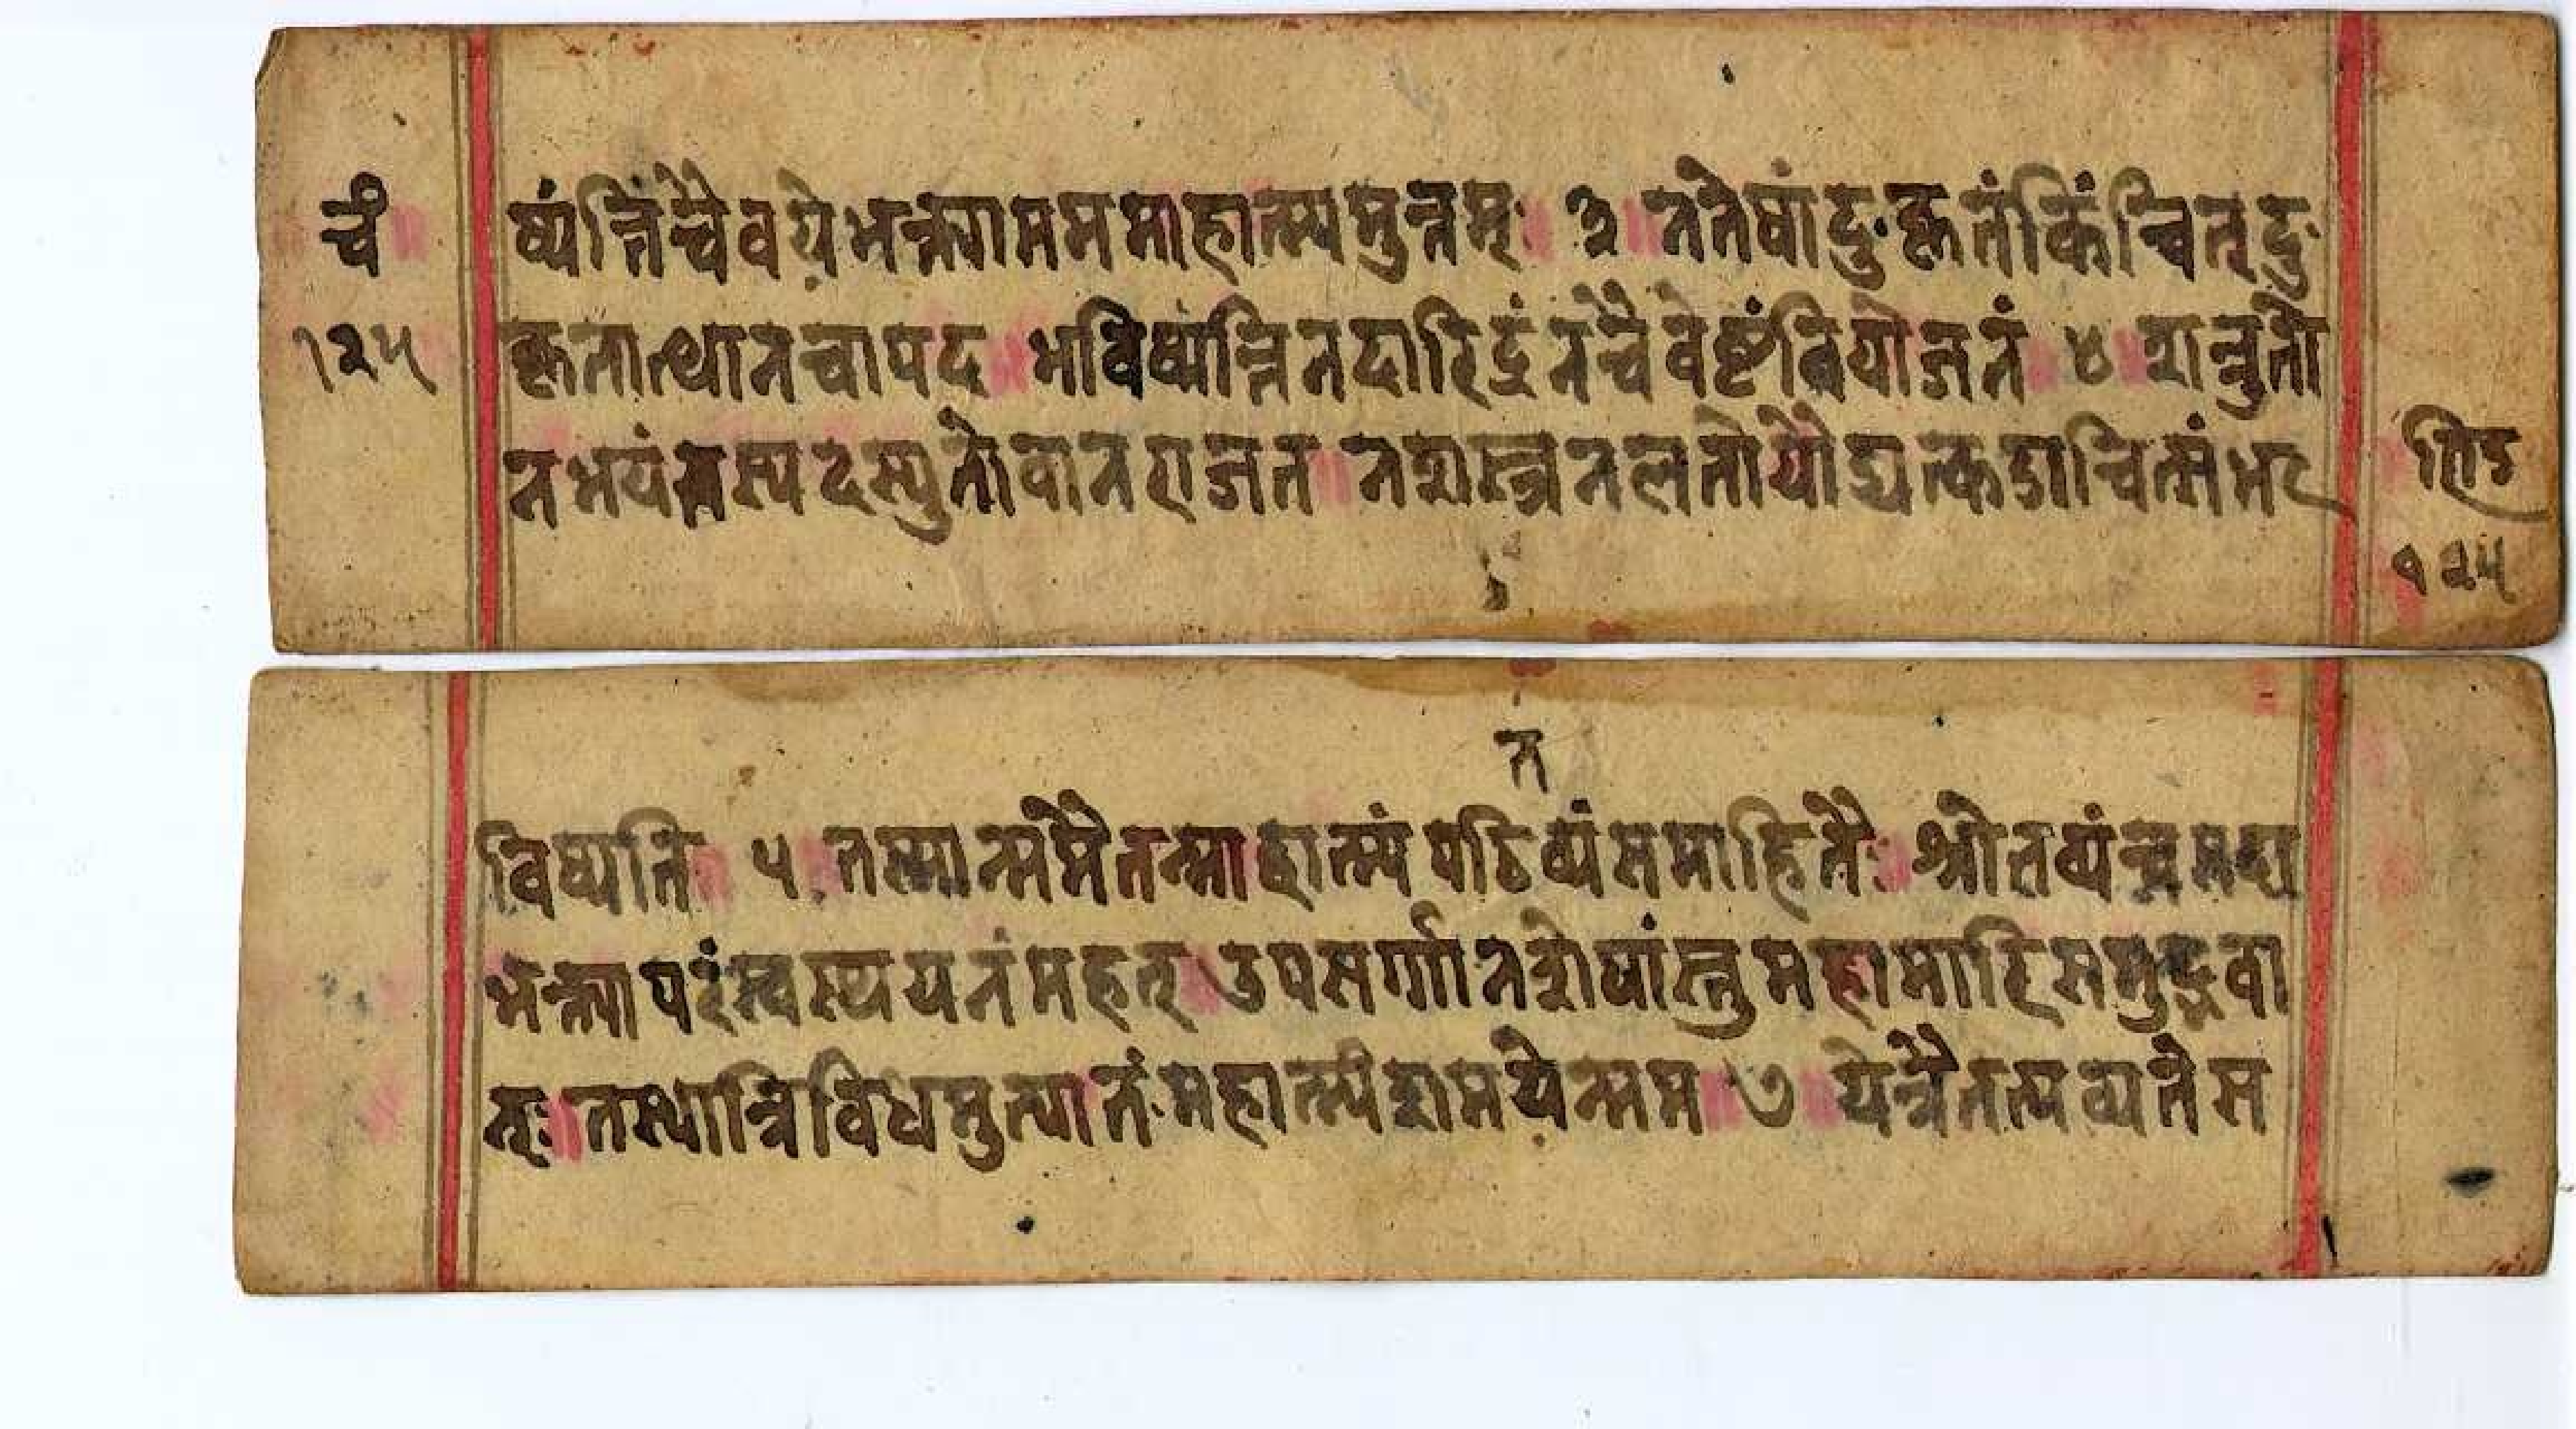 चं
१२५
ष्यंन्तिंचैवयेभक्त्यामममाहात्म्यमुत्तमम्ः ३ नतेषांदुःकृतंकिंचित्दुः
कृतोत्थानचापद भविष्यन्तिनदारिद्रंनचैवेष्टंवियोजनं ४ शत्रुतो
नभयंतस्यदस्युतोवानराजत नशस्त्रनलतोयौद्यात्कदाचित्संभ
हिड
१२५
त
विष्यति ५ तस्मान्ममैतन्माहात्म्यं पठिव्यंसमाहितैः श्रोतव्यंन्चसदा
भक्त्यापरंस्वस्त्ययनंमहत् उपसर्गानशेषांस्तुमहामारिसमुद्भवा
न्ः तथात्रिविधमुत्पातंःमहात्म्यंशमयेन्मम ७ येत्रैतत्पठ्यतेस